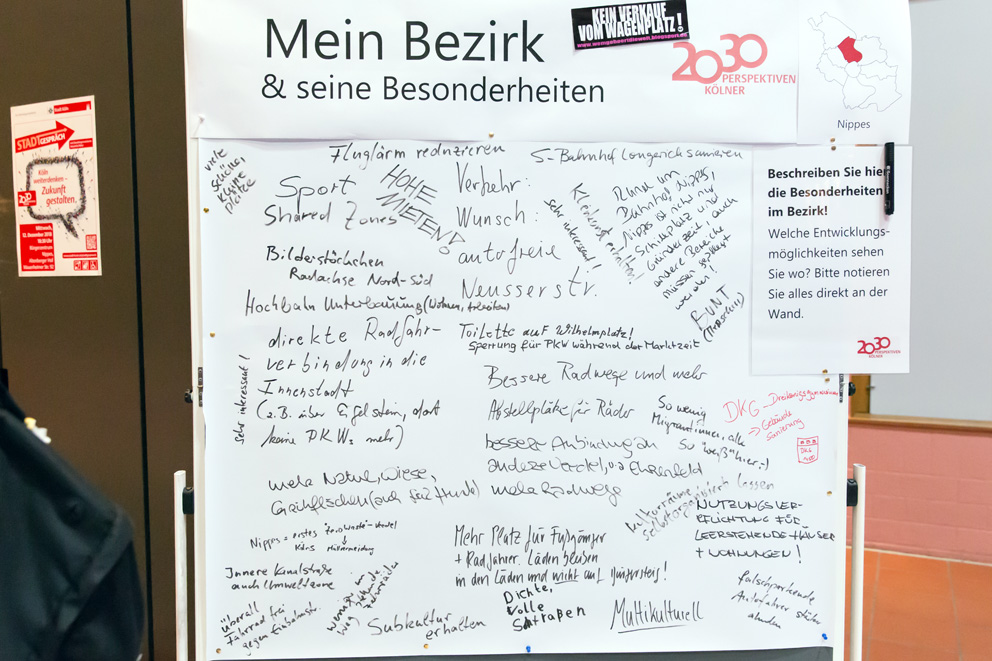 Mein Bezirk
& seine Besonderheiten
KEIN VERKAUF
VOM WAGENPLATZ!
2030
PERSPEKTIVEN
KÖLNER
Nippes
STADT
GESPRÄCH
Köln
weiterdenken -
Zukunft
gestalten.
Beschreiben Sie hier
die Besonderheiten
im Bezirk!
Welche Entwicklungs-
möglichkeiten sehen
Sie wo? Bitte notieren
Sie alles direkt an der
Wand.
2030
PERSPEKTIVEN
KÖLNER
viele
schöne,
kleine
Plätze
Fluglärm reduzieren
S-Bahnhof Longerich sanieren
Sport
Shared Zones
HOHE
MIETEN!
Verkehr:
Wunsch:
autofreie
Neusserstr.
Kleinkunst erhalten!
Sehr interessant!
Rund um
Bahnhof Nippes,
Nippes ist nicht nur
Schillplatz und
Gründerzeit, auch
andere Bereiche
müssen gepflegt
werden!
BUNT
Bilderstöckchen
Radachse Nord-Süd
Hochbahn Unterbauung (Wohnen, arbeiten)
direkte Radfahr-
verbindung in die
Innenstadt
(z.B. über Eigelstein, dort
keine PKWs mehr)
sehr interessant!
Toilette auf Wilhelmplatz!
Sperrung für PKW während der Marktzeit
Bessere Radwege und mehr
Abstellplätze für Räder
bessere Anbindung an
andere Viertel, v.a. Ehrenfeld
mehr Radwege
So wenig
Migrant:innen, alle
so weiß hier :-)
DKG - Dreikönigsgymnasium
-> Gebäude
sanierung
DKG
mehr Natur, Wiese,
Grünflächen (auch für Hunde)
Kulturräume
selbstorganisiert lassen
NUTZUNGSVER-
PFLICHTUNG FÜR
LEERSTEHENDE HÄUSER
+ WOHNUNGEN!
Nippes = erstes "Zero Waste"-Veedel
Kölns Müllvermeidung
Mehr Platz für Fußgänger
+ Radfahrer. Läden bleiben
in den Läden und nicht auf
Innere Kanalstraße
auch Umweltzone
überall
Fahrrad frei
gegen Einbahnstr.
weniger
Subkultur
erhalten
Dichte,
volle
Straßen
Multikulturell
falschparkende
Autofahrer stärker
ahnden